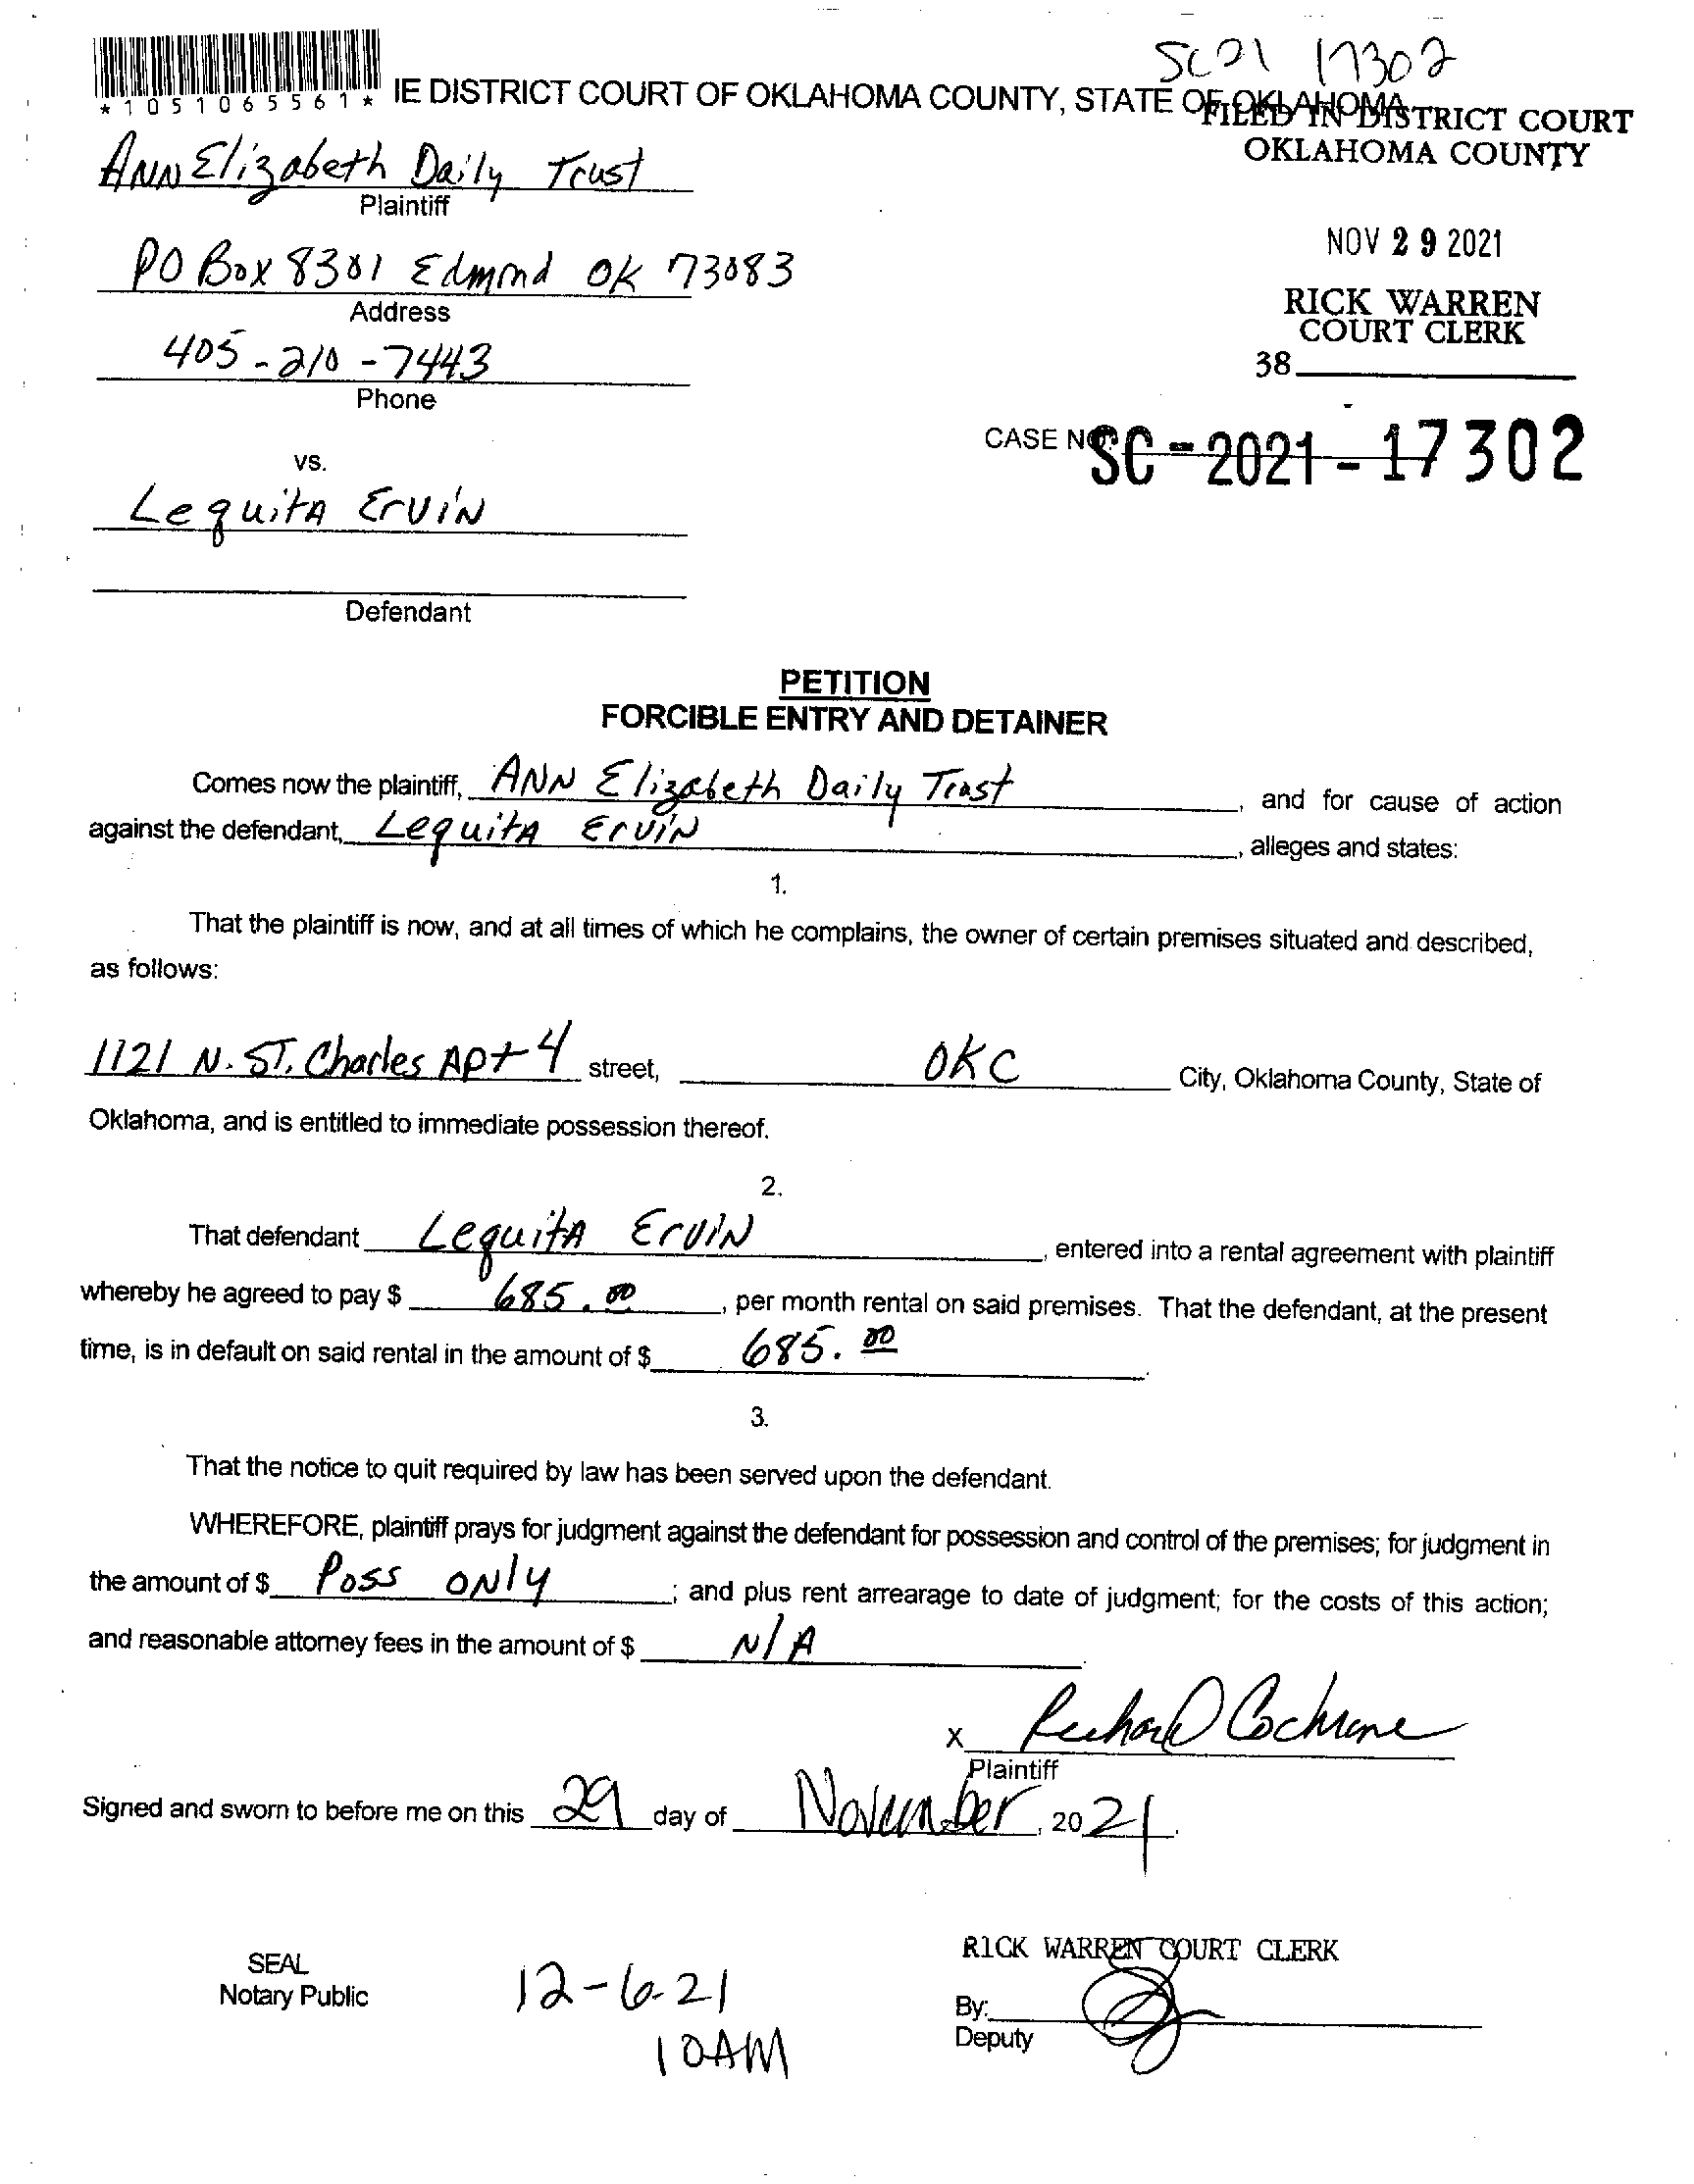 SC21 17302
*1051065561* IE DISTRICT COURT OF OKLAHOMA COUNTY, STATE OF OKLAHOMA
FILED IN DISTRICT COURT
OKLAHOMA COUNTY
ANN Elizabeth Daily Trust
Plaintiff
NOV 29 2021
PO Box 8301 Edmond OK 73083
Address
RICK WARREN
COURT CLERK
405-210-7443
38
Phone
CASE NO. SC-2021-17302
vs.
Lequita Ervin
Defendant
PETITION
FORCIBLE ENTRY AND DETAINER
Comes now the plaintiff, ANN Elizabeth Daily Trust, and for cause of action
against the defendant, Lequita Ervin, alleges and states:
1.
That the plaintiff is now, and at all times of which he complains, the owner of certain premises situated and described,
as follows:
1121 N. ST. Charles Apt 4 street, OKC City, Oklahoma County, State of
Oklahoma, and is entitled to immediate possession thereof.
2.
That defendant Lequita Ervin, entered into a rental agreement with plaintiff
whereby he agreed to pay $ 685.00, per month rental on said premises. That the defendant, at the present
time, is in default on said rental in the amount of $ 685.00.
3.
That the notice to quit required by law has been served upon the defendant.
WHEREFORE, plaintiff prays for judgment against the defendant for possession and control of the premises; for judgment in
the amount of $ Poss only; and plus rent arrearage to date of judgment; for the costs of this action;
and reasonable attorney fees in the amount of $ N/A.
X Richard Cochrane
Plaintiff
Signed and sworn to before me on this 29 day of November, 2021.
RICK WARREN COURT CLERK
SEAL
Notary Public
12-6-21
10AM
By:
Deputy